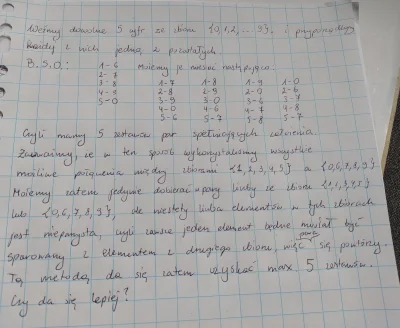 Weźmy dowolne 5 cyfr ze zbioru {0,1,2,...9}, i przyporządkujmy
każdej z nich jedną z pozostałych
B.S.O.: 1-6 Możemy je mieszać następująco
2-7 1-7 1-8 1-9 1-0
3-8 2-8 2-9 2-0 2-6
4-9 3-9 3-0 3-6 3-7
5-0 4-0 4-6 4-7 4-8
5-6 5-7 5-8 5-9
Czyli mamy 5 zestawów par spełniających założenia.
Zauważmy, że w ten sposób wykorzystaliśmy wszystkie
możliwe połączenia między zbiorami {1,2,3,4,5} a {0,6,7,8,9}
Możemy zatem jedynie dobierać w pary liczby ze zbioru {1,2,3,4,5}
lub {0,6,7,8,9}, ale niestety liczba elementów w tych zbiorach
jest nieparzysta, czyli zawsze jeden element będzie musiał być
sparowany z elementem z drugiego zbioru, więc się powtórzy.
Tą metodą da się zatem uzyskać max 5 zestawów.
Czy da się lepiej?